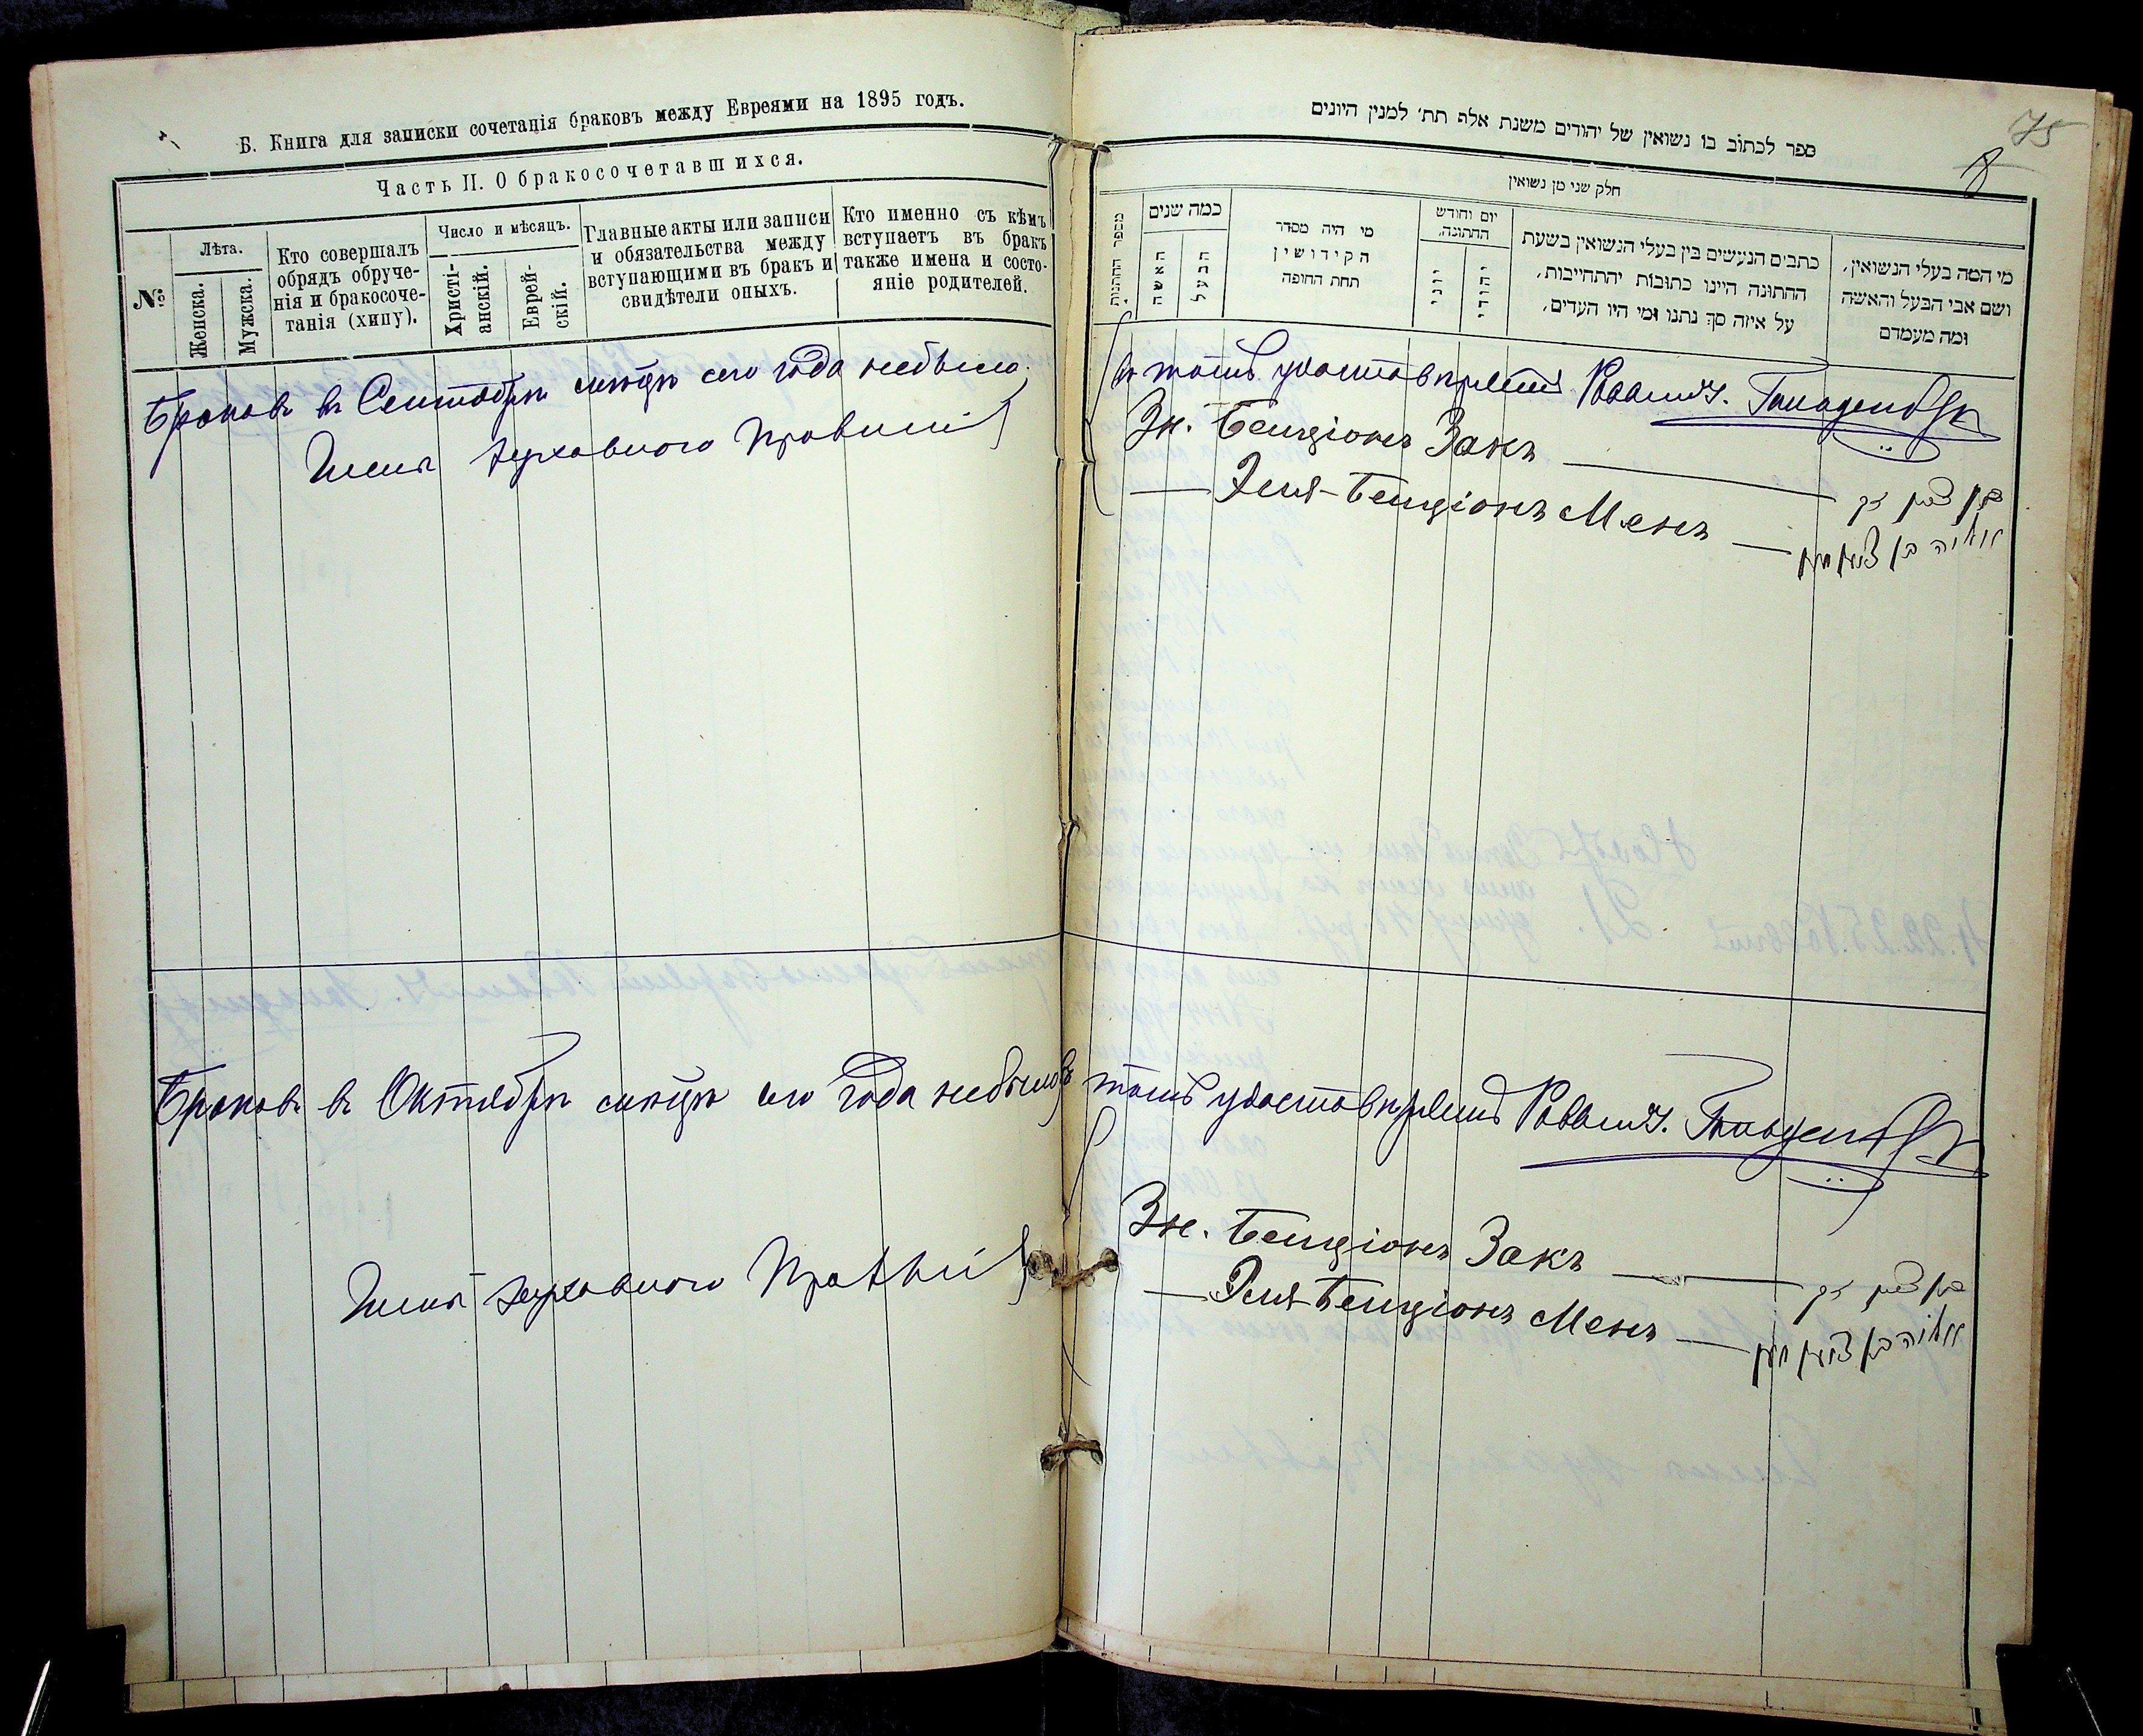 Б. Книга для записки сочетанія браковъ между Евреями на 1895 годъ.
Часть II. О бракосочетавшихся.
№
Лѣта.
Женска.
Мужска.
Кто совершалъ
обрядъ обруче-
нія и бракосоче-
танія (хипу).
Число и мѣсяцъ.
Христі-
анскій.
Еврей-
скій.
Главные акты или записи
и обязательства между
вступающими въ бракъ и
свидѣтели оныхъ.
Кто именно съ кѣмъ
вступаетъ въ бракъ
также имена и состо-
яніе родителей.
Браковъ въ Сентябрѣ мѣсяцѣ сего года небыло,
Члены духовного Правленій
Браковъ въ Октябрѣ мѣсяцѣ сего года небыло въ
Члены духовного Правленій
75
8
ספר לכתוב בו נשואין של יהודים משנת אלף תת׳ למנין היונים
חלק שני מן נשואין
מספר החתונות
כמה שנים
האשה
הבעל
מי היה מסדר
הקידושין
תחת החופה
יום וחודש
החתונה,
יוני
יהודי
כתבים הנעשים בין בעלי הנשואין בשעת
החתונה היינו כתובות יהתחייבות,
על איזה סך נתנו ומי היו העדים,
מי המה בעלי הנשואין,
ושם אבי הבעל והאשה
ומה מעמדם
въ томъ удостовѣряетъ Раввинъ Г.
Зн. Бенціонъ Закъ — בן ציון זק
— Элія-Бенціонъ Менъ — אליה בן ציון מען
томъ удостовѣряетъ Раввинъ Г.
Зн. Бенціонъ Закъ — בן ציון זק
— Элія-Бенціонъ Менъ — אליה בן ציון מען